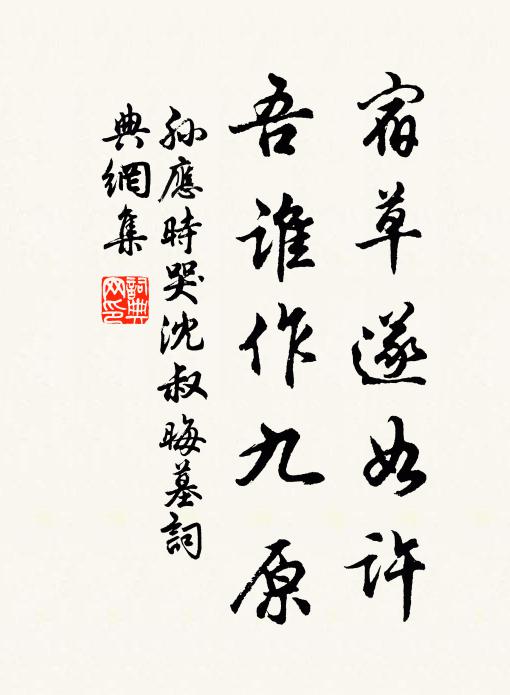 宿草遂如許
吾誰作九原
孫應時哭沈叔晦墓詞
典網集
詞典網印